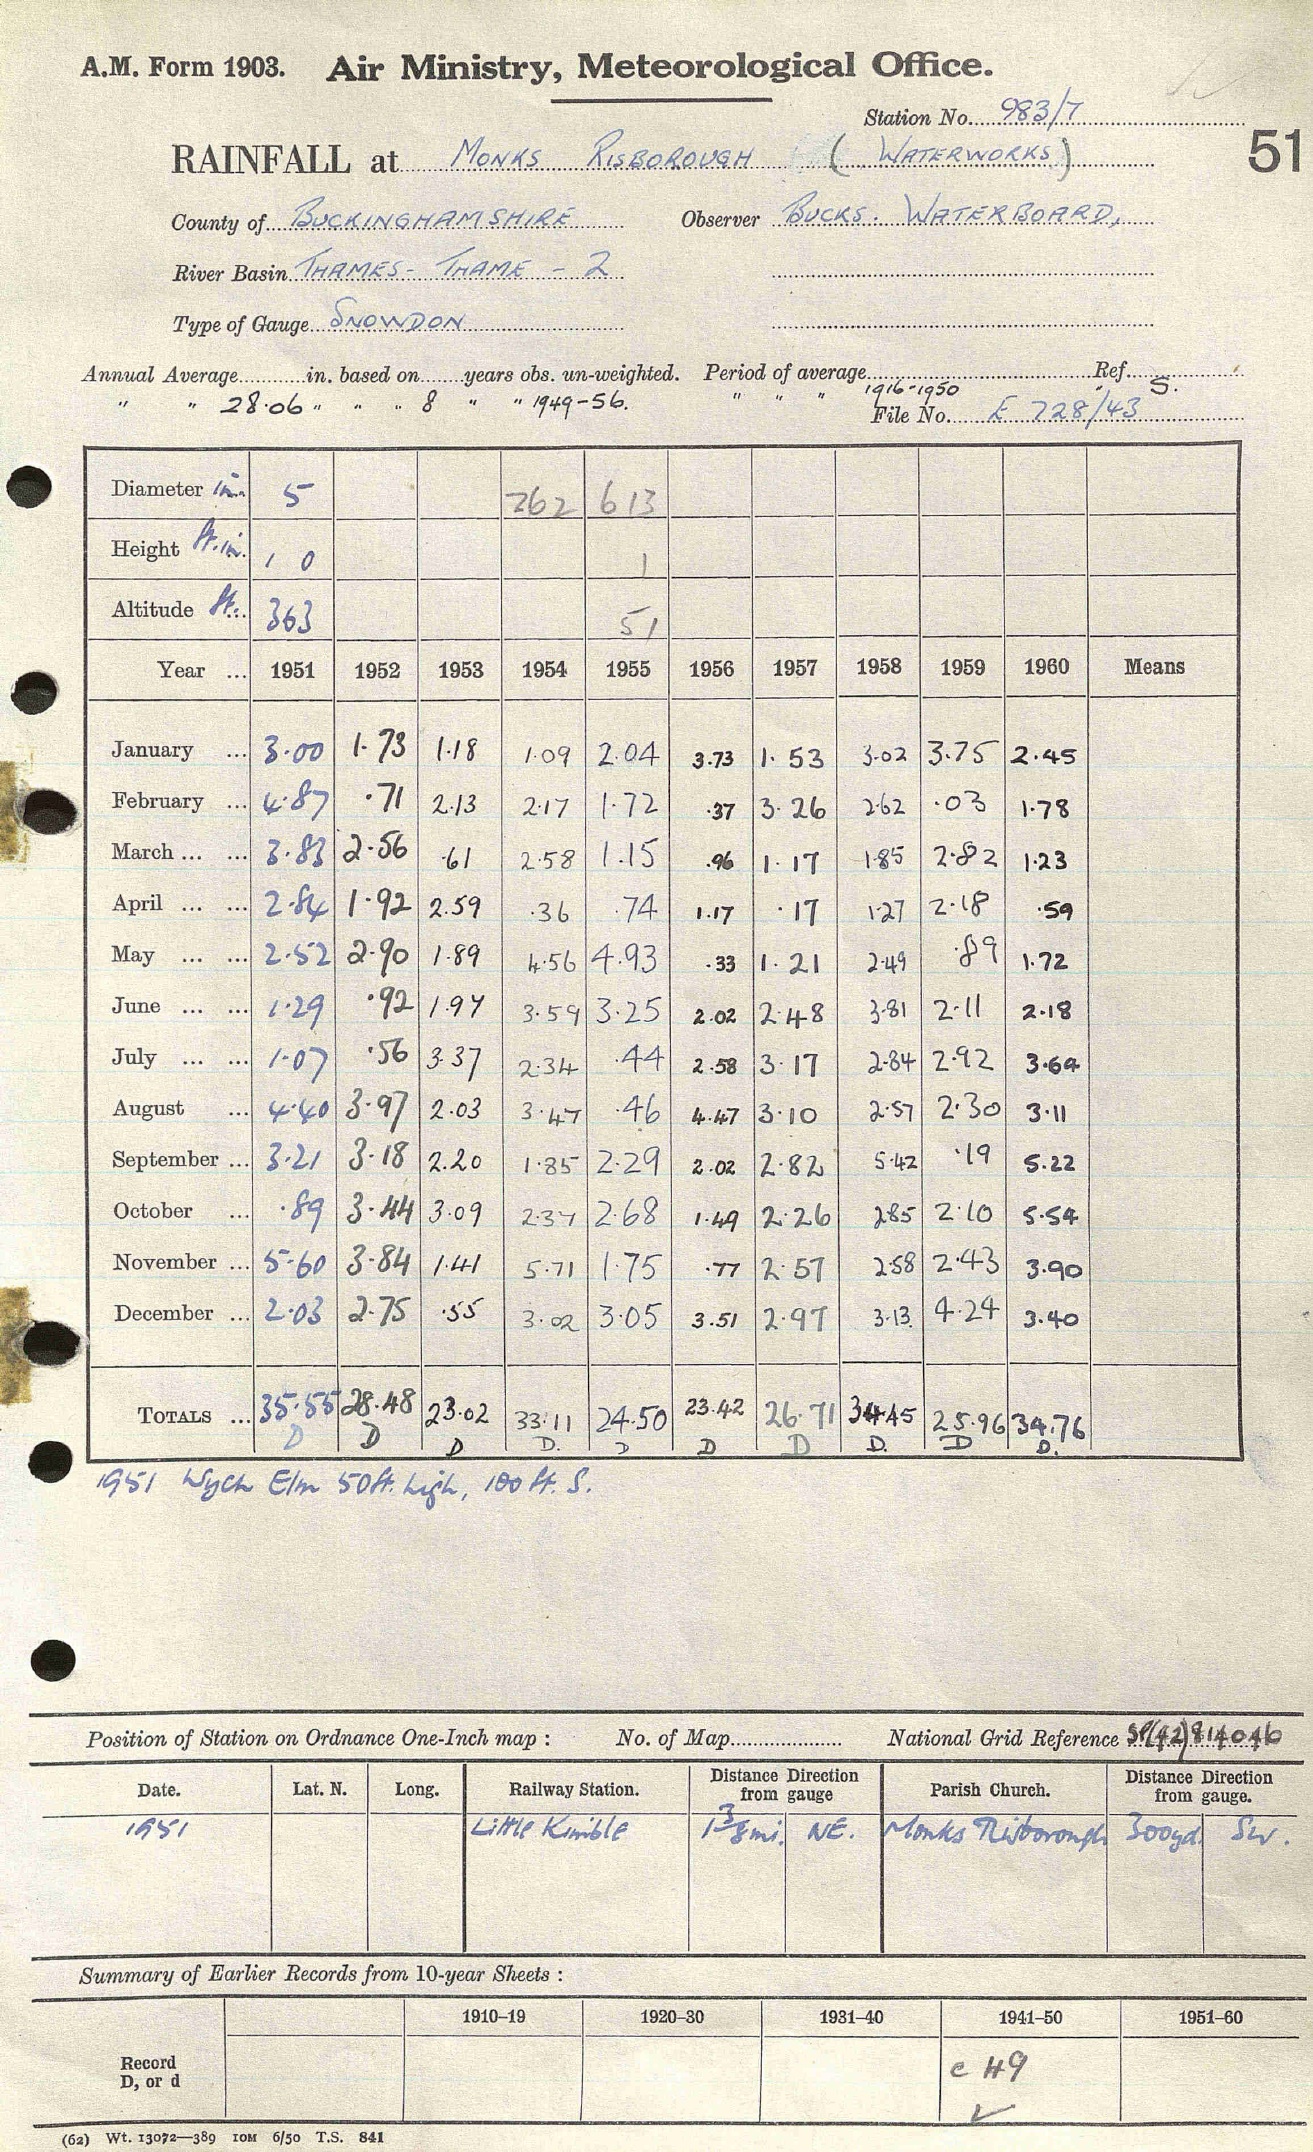 A.M. Form 1903. Air Ministry, Meteorological Office.
Station No. 983/7
51
RAINFALL at MONKS RISBOROUGH (WATERWORKS)
County of BUCKINGHAMSHIRE Observer BUCKS. WATERBOARD,
River Basin THAMES - THAME - 2
Type of Gauge SNOWDON
Annual Average in. based on years obs. un-weighted. Period of average Ref.
" " 28.06 " " " 8 " " 1949-56. " " " 1916-1950 " S.
File No. E 728/43
Diameter in. 5 262 613
Height ft. in. 1 0 1
Altitude ft. 363 51
Year ... 1951 1952 1953 1954 1955 1956 1957 1958 1959 1960 Means
January ... 3.00 1.73 1.18 1.09 2.04 3.73 1.53 3.02 3.75 2.45
February ... 4.87 .71 2.13 2.17 1.72 .37 3.26 2.62 .03 1.78
March ... ... 3.83 2.56 .61 2.58 1.15 .96 1.17 1.85 2.82 1.23
April ... ... 2.84 1.92 2.59 .36 .74 1.17 .17 1.27 2.18 .59
May ... ... 2.52 2.90 1.89 4.56 4.93 .33 1.21 2.49 .89 1.72
June ... ... 1.29 .92 1.97 3.59 3.25 2.02 2.48 3.81 2.11 2.18
July ... ... 1.07 .56 3.37 2.34 .44 2.58 3.17 2.84 2.92 3.64
August ... 4.40 3.97 2.03 3.47 .46 4.47 3.10 2.57 2.30 3.11
September ... 3.21 3.18 2.20 1.85 2.29 2.02 2.82 5.42 .19 5.22
October ... .89 3.44 3.09 2.37 2.68 1.49 2.26 2.85 2.10 5.54
November ... 5.60 3.84 1.41 5.71 1.75 .77 2.57 2.58 2.43 3.90
December ... 2.03 2.75 .55 3.02 3.05 3.51 2.97 3.13 4.24 3.40
TOTALS ... 35.55 28.48 23.02 33.11 24.50 23.42 26.71 34.45 25.96 34.76
D D D D. D D D D. D D.
1951 Wych Elm 50ft. high, 100 ft. S.
Position of Station on Ordnance One-Inch map : No. of Map National Grid Reference SP(42)814046
Date. Lat. N. Long. Railway Station. Distance from gauge Direction Parish Church. Distance Direction from gauge.
1951 Little Kimble 1 3/8 mi. NE. Monks Risborough 300yd. SW.
Summary of Earlier Records from 10-year Sheets :
1910–19 1920–30 1931–40 1941–50 1951–60
Record D, or d c 49
(62) Wt. 13072—389 IOM 6/50 T.S. 841